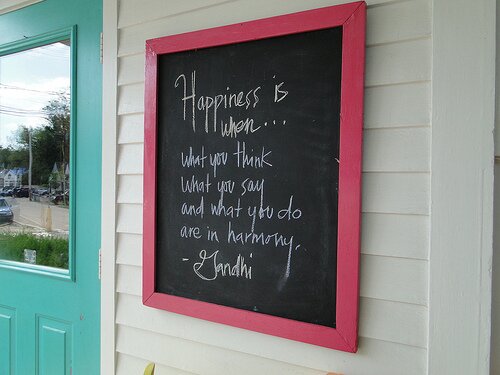 Happiness is
when...
what you think
what you say
and what you do
are in harmony.
- Gandhi